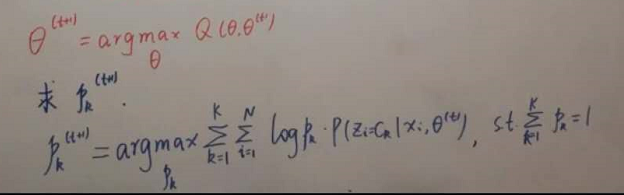 θ^(t+1) = argmax_θ Q(θ,θ^(t))
求 p_k^(t+1).
p_k^(t+1) = argmax_{p_k} ∑_{k=1}^K ∑_{i=1}^N log p_k · P(z_i=c_k|x_i,θ^(t)), s.t. ∑_{k=1}^K p_k=1